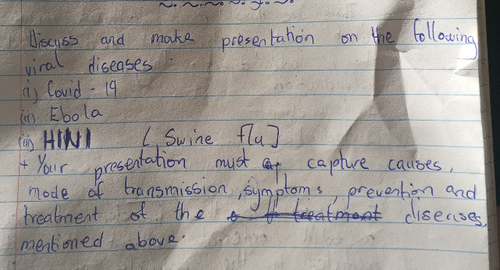 Discuss and make presentation on the following
viral diseases
(i) Covid - 19
(ii) Ebola
(iii) H1N1 [Swine flu]
+ Your presentation must capture causes,
mode of transmission, symptoms, prevention and
treatment of the treatment diseases,
mentioned above.